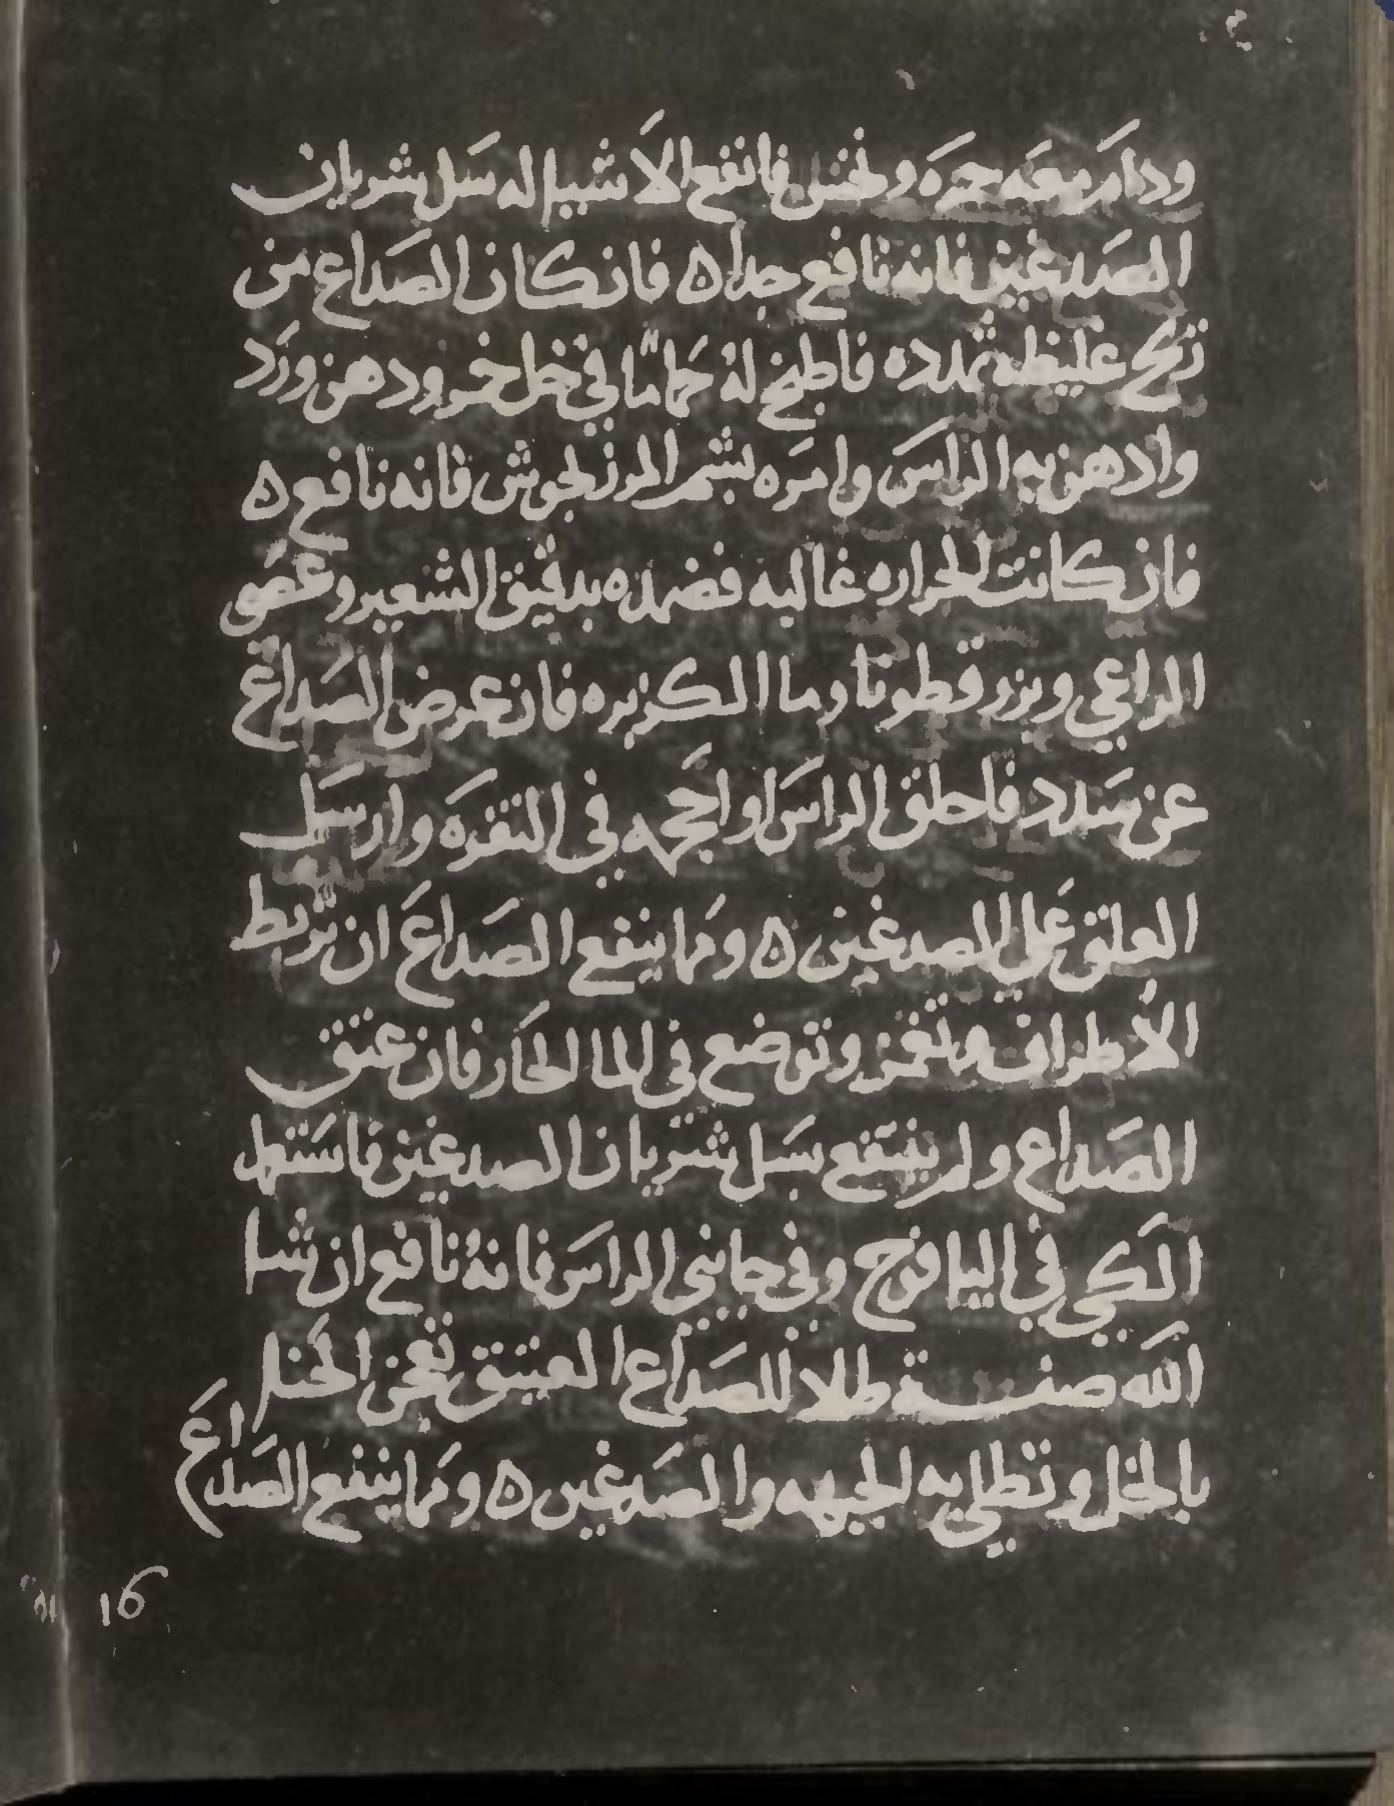 ودام معه حمره ونخس فانفع الاشيا له سل شريان
الصدغين فانه نافع جدا ه فان كان الصداع من
ريح غليظه تمدده فاطبخ له حماما في خل خمر ودهن ورد
وادهن به الراس وامره بشم المرزنجوش فانه نافع ه
فان كانت الحراره غالبه فضمده بدقيق الشعير وعصى
الراعي وبزر قطونا وما الكزبره فان عرض الصداع
عن سدد فاحلق الراس او احجمه في النقره وارسل
العلق على الصدغين ه ومما ينفع الصداع ان تربط
الاطراف وتغمز وتوضع في الما الحار فان عتق
الصداع ولم ينتفع بسل شريان الصدغين فاستعمل
الكي في اليافوخ وفي جانبي الراس فانه نافع ان شا
الله صفة طلا للصداع العتيق تعجن الحنا
بالخل وتطلي به الجبهه والصدغين ه ومما ينفع الصداع
16